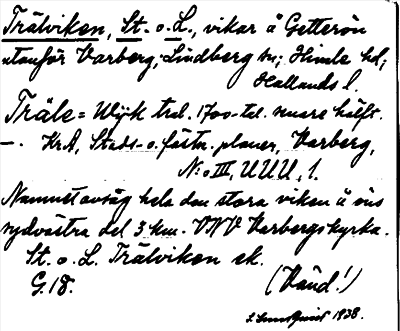 Trälviken, St. o. L., vikar å Getterön
utanför Varberg; Lindberg sn; Himle hd;
Hallands l.
Träle = Wijk trol. 1700-tal. senare hälft.
—. Kr.A, Stads- o. fästn. planer, Varberg,
N:o III, UUU, 1.
Namnet avsåg hela den stora viken å öns
sydvästra del 3 km. VNV Varbergs kyrka.
St. o. L. Trälviken ek.
G. 18. (Vänd!)
S. Lundquist 1938.